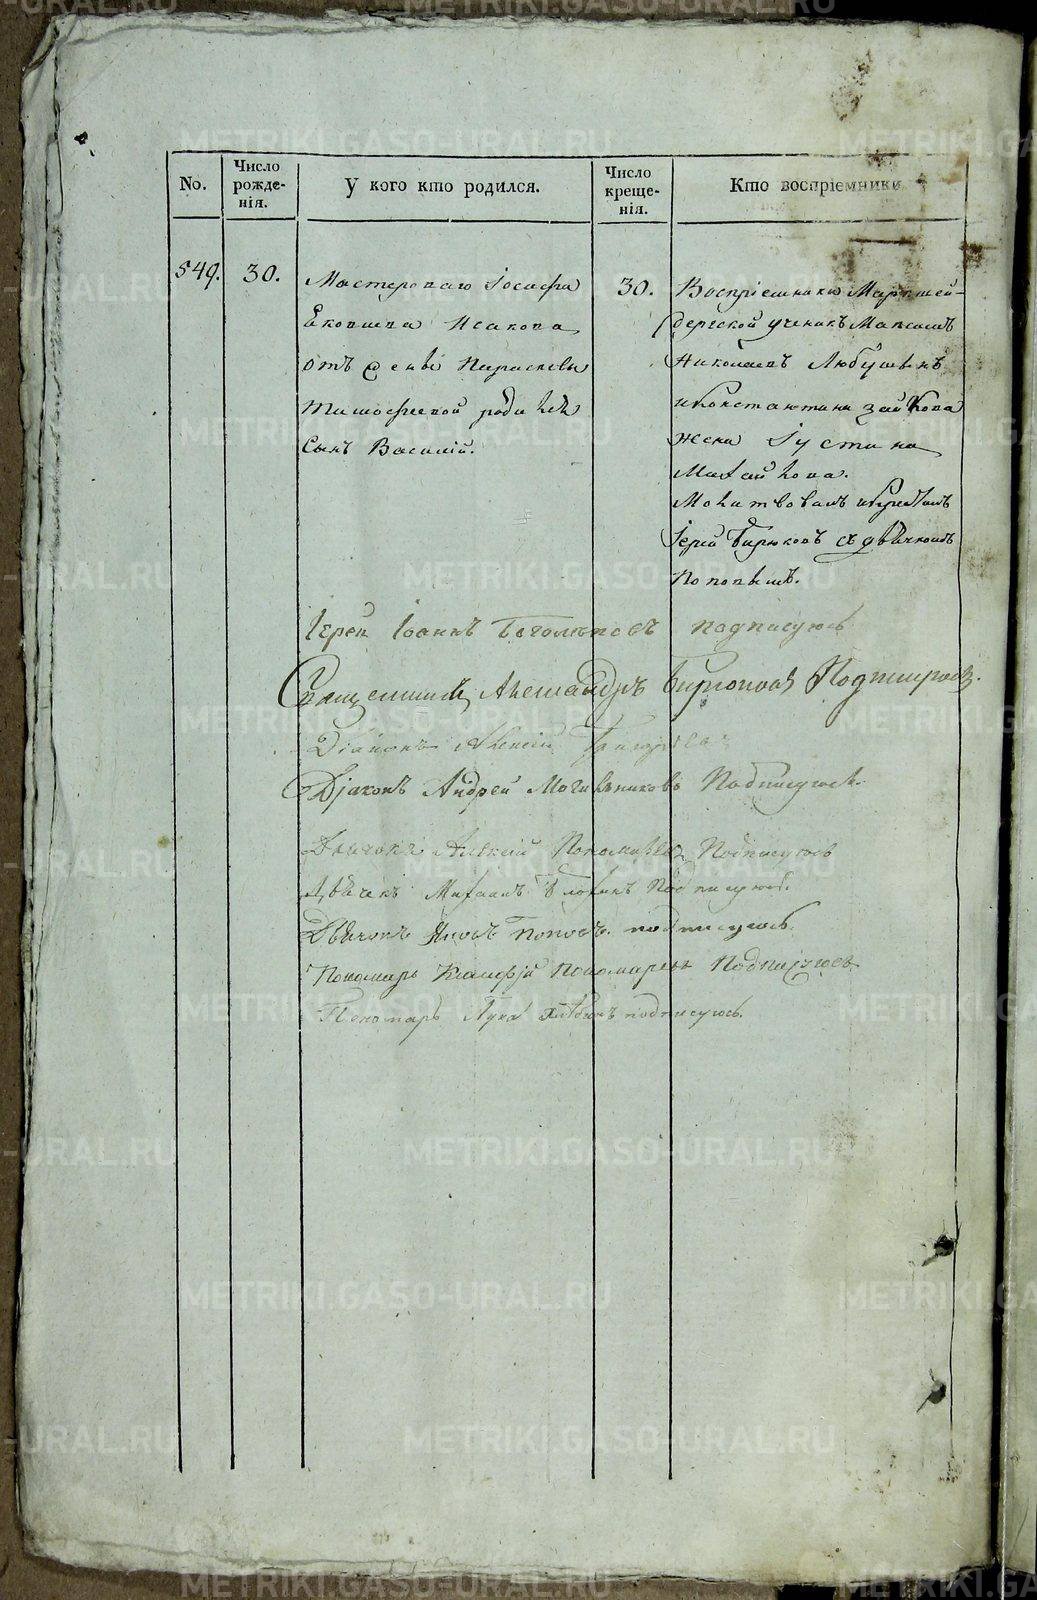 No.
Число рожде-нія.
У кого кто родился.
Число креще-нія.
Кто воспріемники
549.
30.
Мастероваго Іосифа
Исакова
отъ жены Парасковьи
Тимофеевой родился
Сынъ Василій.
30.
Воспріемники Маркшей-
дерской ученикъ Максимъ
Николаевъ Любушкинъ
и Константина Зайкова
жена Іустина
Михайлова.
Молитвовалъ и крестилъ
Іерей Бирюковъ съ дьячкомъ
Поповымъ.
Іерей Іоаннъ Боголеповъ подписуюсь
Священникъ Александръ Бирюковъ
Діаконъ Алексій
Діаконъ Андрей Могильниковъ Подписуюсь.
Дьячокъ Алексій Пономаревъ Подписуюсь
Дьячекъ Михаилъ Подписуюсь.
Дьячокъ Яковъ Поповъ подписуюсь.
Пономарь Пономаревъ Подписуюсь
Пономарь Лука Хлебинъ подписуюсь.
METRIKI.GASO-URAL.RU